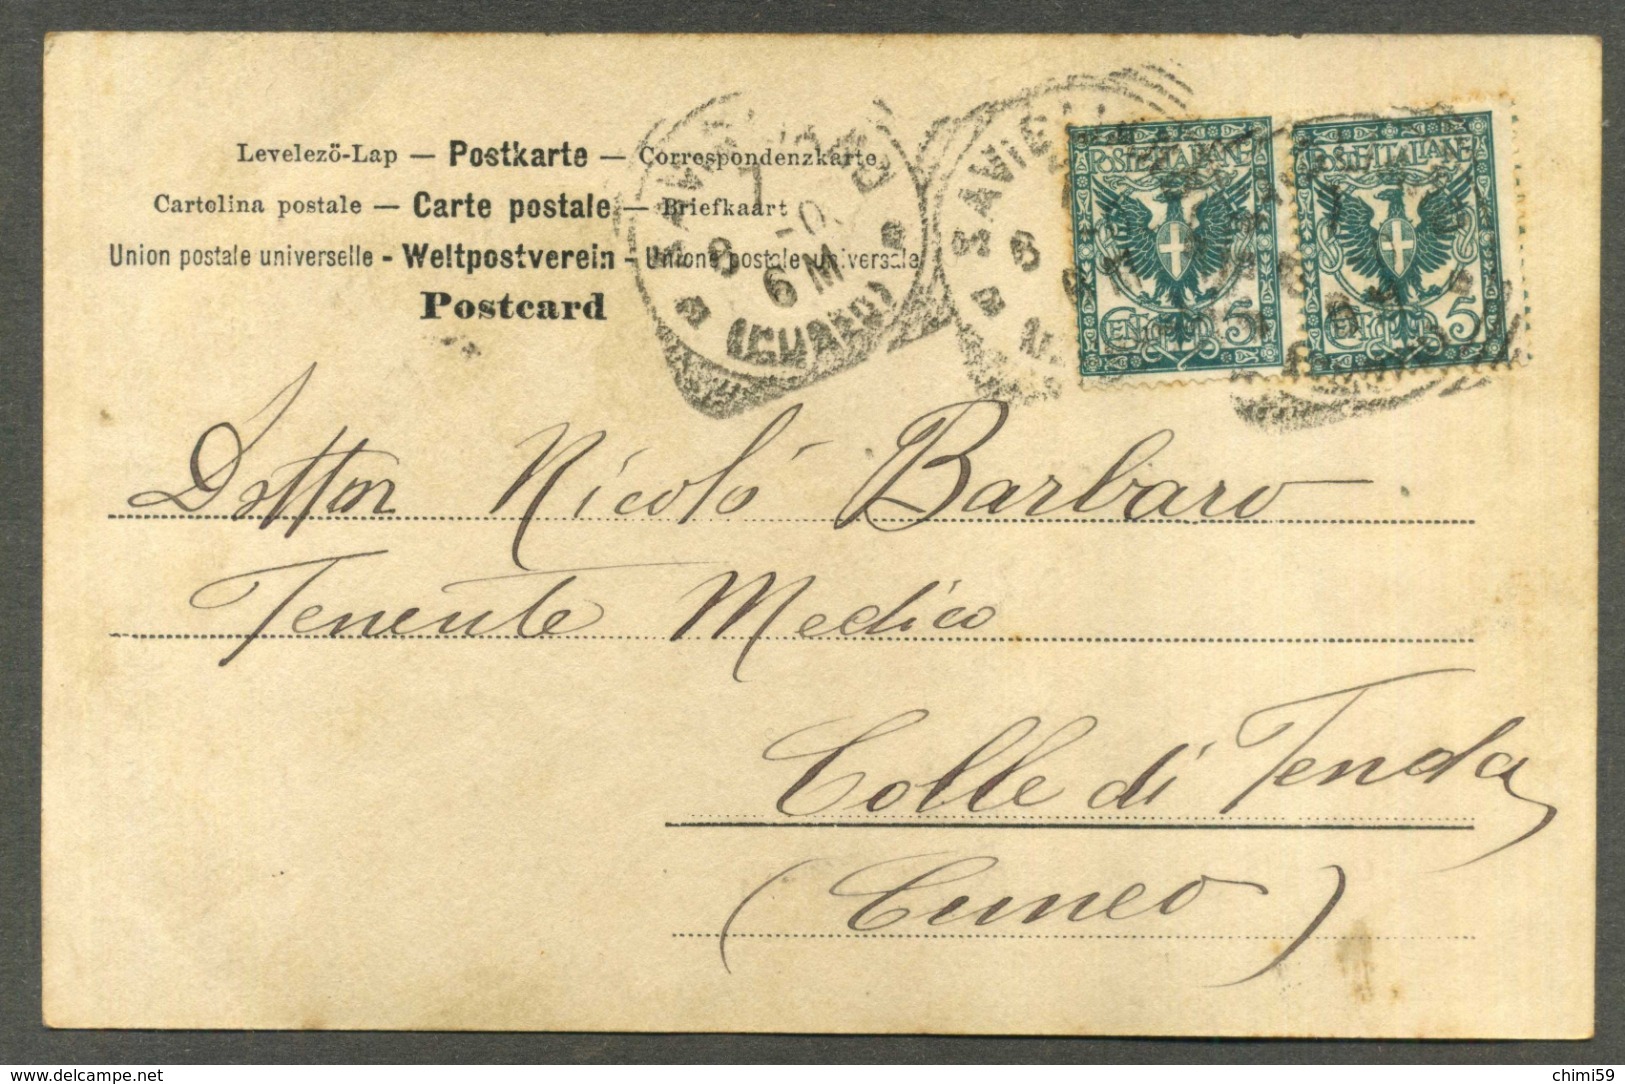 Levelező-Lap — Postkarte — Correspondenzkarte
Cartolina postale — Carte postale — Briefkaart
Union postale universelle - Weltpostverein - Unione postale universale
Postcard
8
6 M
SAVIG
8
POSTE ITALIANE
CENTESIMI 5
POSTE ITALIANE
CENTESIMI 5
Dottor Nicoló Barbaro
Tenente Medico
Colle di Tenda
(Cuneo)
www.delcampe.net
chimi59